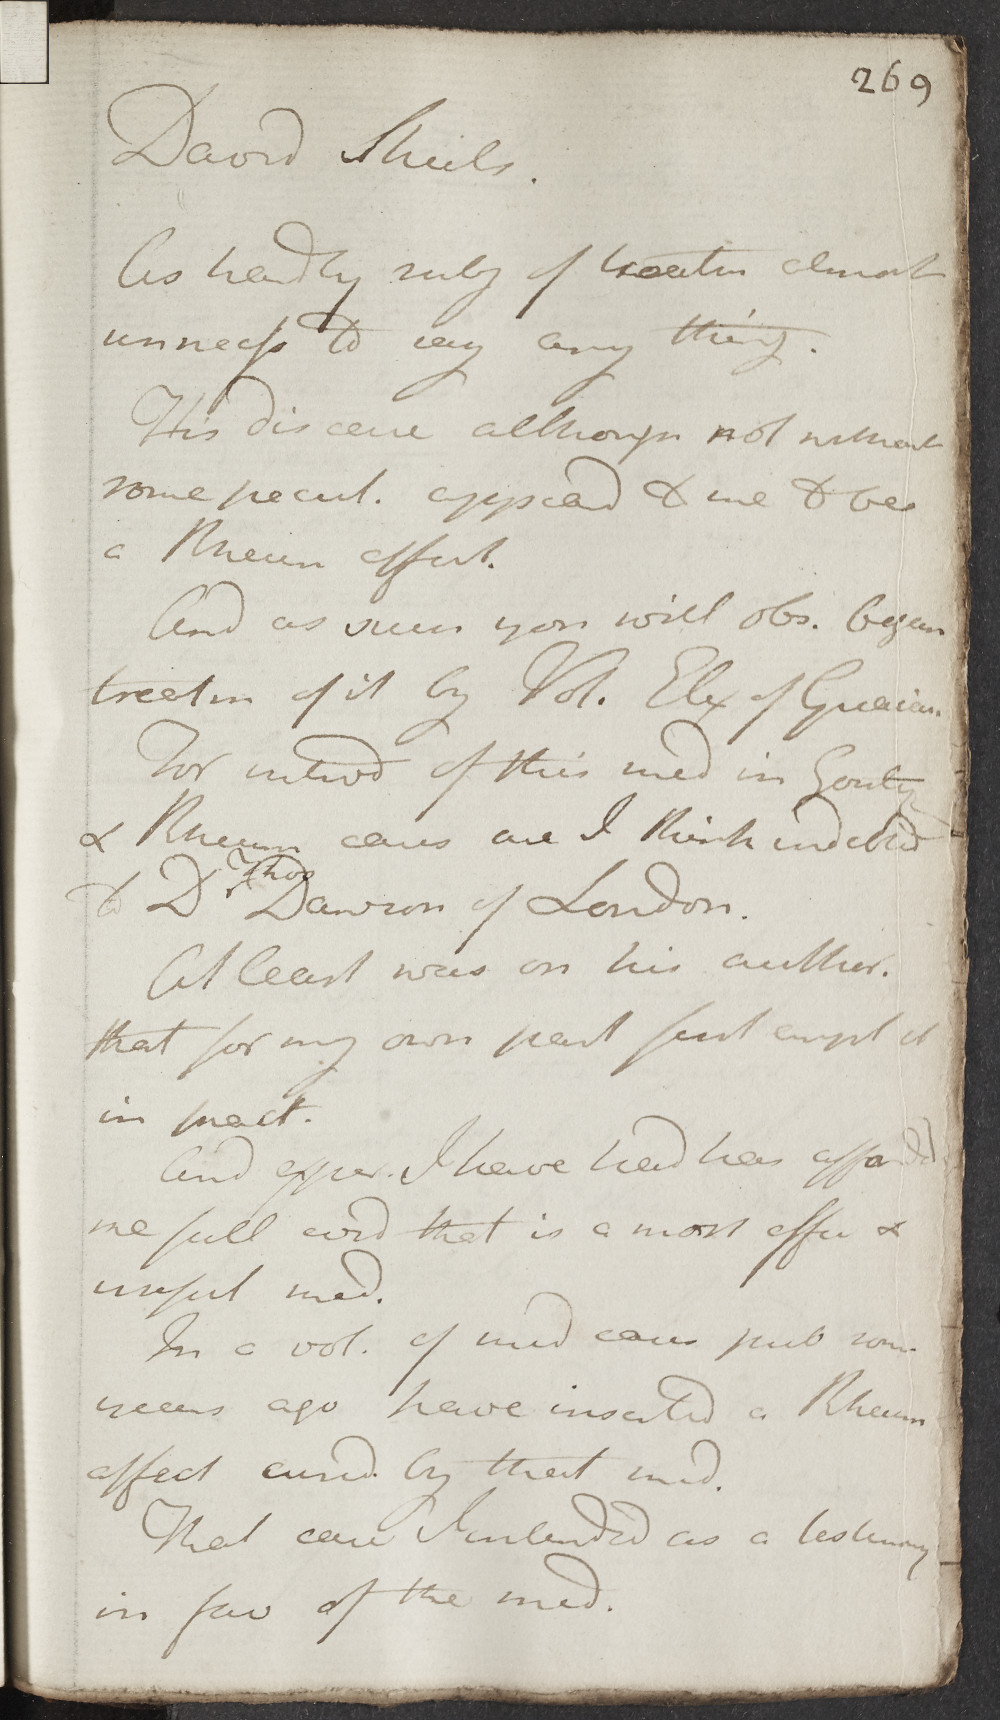 269
David Sheils.
As hardly subj of treatm almost
unnecess to say any thing.
His disease although not without
some pecul. appeard to me to be
a Rheum affect.
And as such you will obs. began
treatm of it by Vol. Elix of Guaiac.
For introd of this med in Gouty
& Rheum cases are I think indebted
to Dr Thos Dawson of London.
At least was on his author.
that for my own part first empl it
in pract.
And exper. I have had has afforded
me full evid that is a most effic &
useful med.
In a vol. of med cases pub som
years ago have inserted a Rheum
affect cured by that med.
That case I intended as a testimony
in fav of the med.